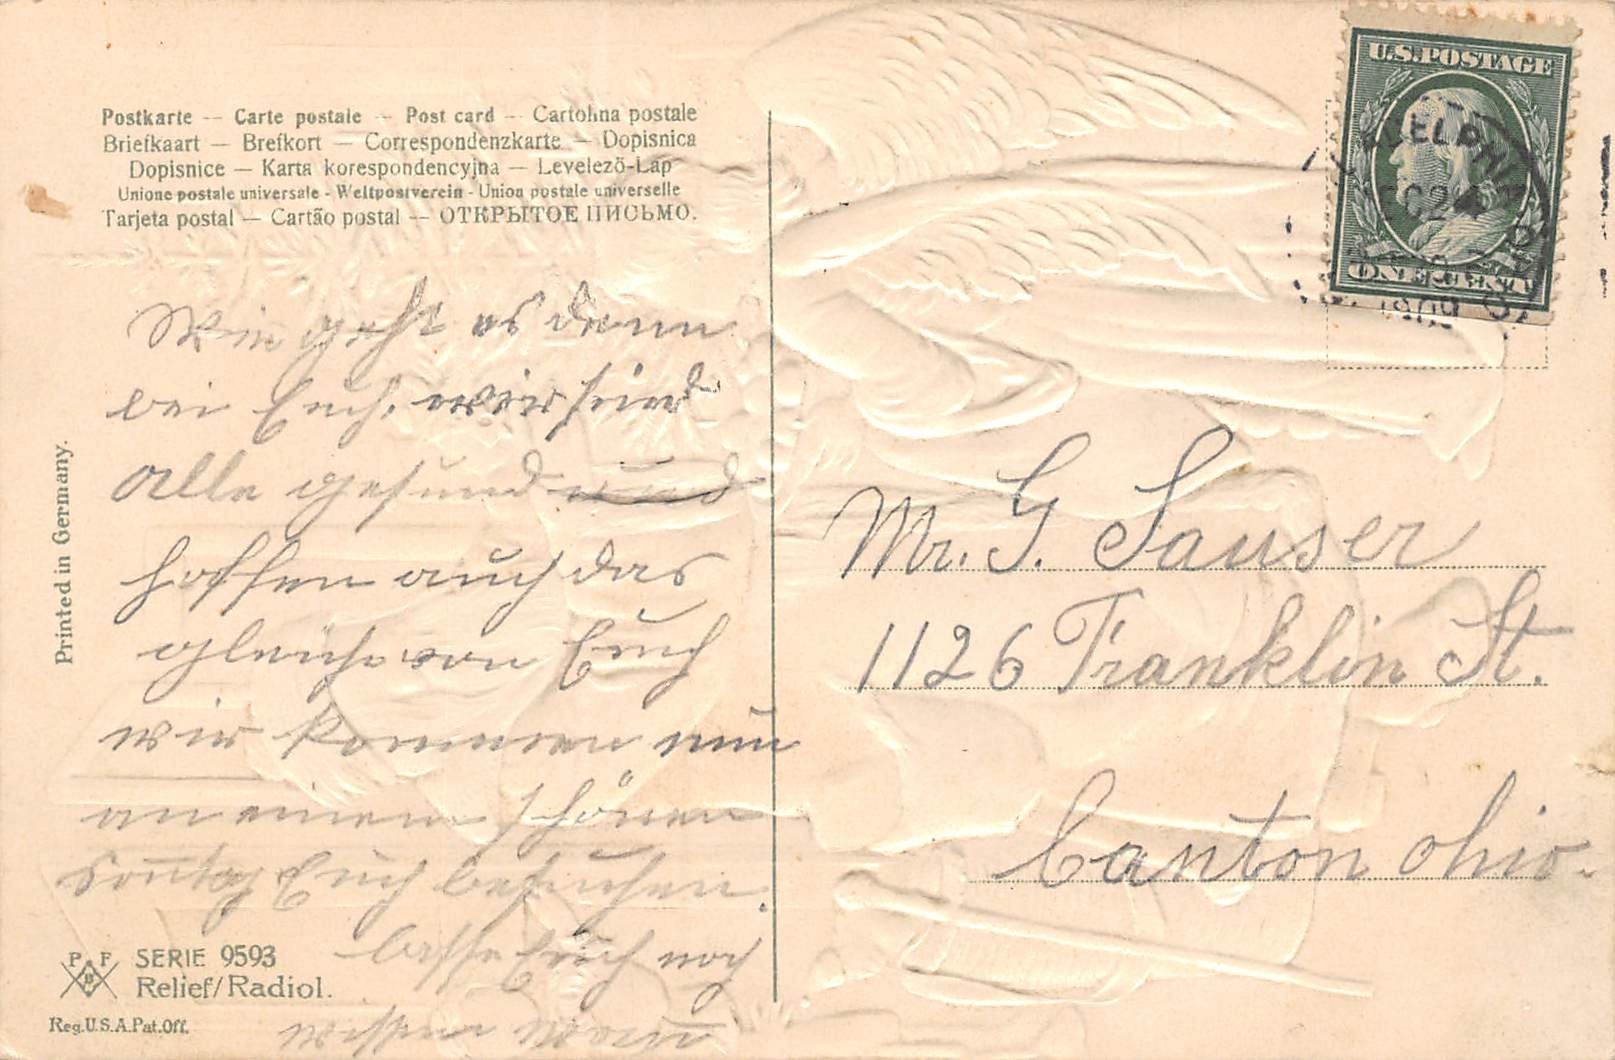 Postkarte — Carte postale — Post card — Cartolina postale
Briefkaart — Brefkort — Correspondenzkarte — Dopisnica
Dopisnice — Karta korespondencyjna — Levelezö-Lap
Unione postale universale - Weltpostverein - Union postale universelle
Tarjeta postal — Cartão postal — ОТКРЫТОЕ ПИСЬМО.
Wie geht es denn
bei Euch, wir sind
alle gesund und
hoffen auch das
gleiche von Euch
wir kommen nun
an einem schönen
Sontag Euch besuchen.
lasse Euch noch
wissen wann
Printed in Germany.
P F
B
SERIE 9593
Relief/Radiol.
Reg.U.S.A.Pat.Off.
U.S.POSTAGE
ONE CENT
1909
Mr. G. Sauser
1126 Franklin St.
Canton Ohio.